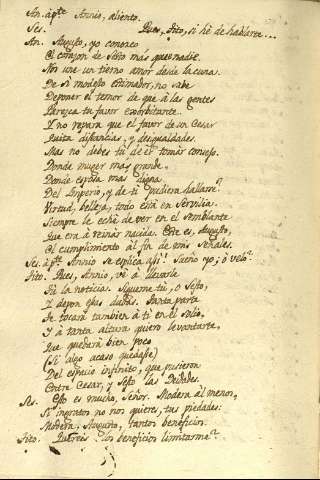 An. àpte. Annio, aliento.
Ses. Pues, Tito, si hè de hablarte...
An. Augusto, yo conozco
El corazon de Sesto más que nadie.
Nos une un tierno amor desde la cuna.
De si modesto estimador, no sabe
Deponer el temor de que à las gentes
Paresca tu favor exorbitante.
Y no repara que el favor de un Cesar
Quita distancias, y desigualdades.
Mas no debes tu de èl tomar consejo.
Donde muger mas grande.
Donde esposa mas digna
Del Imperio, y de ti pudiera hallarse?
Virtud, belleza, todo està en Servilia.
Siempre le echè de ver en el semblante
Que era à reinar nacida. Este es, Augusto,
El cumplimiento al fin de mis señales.
Ses. àpte. Annio se esplica asi! Sueño yo; ò velo?
Tito. Pues, Annio, vè à llevarle
Tu la noticia. Sigueme tu, o Sesto,
Y depon esas dudas. Tanta parte
Te tocarà tambien à ti en el solio,
Y à tanta altura quiero levantarte,
Que quedarà bien poco
(Si algo acaso quedase)
Del espacio infinito, que pusieron
Entre Cesar, y Sesto las Deidades.
Ses. Esto es mucho, Señor. Modera àl menos,
Si ingratos no nos quieres, tus piedades:
Modera, Augusto, tantos beneficios.
Tito. Quereis los beneficios limitarme?